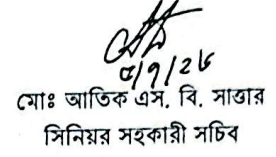 ৫/৭/২৬
মোঃ আতিক এস. বি. সাত্তার
সিনিয়র সহকারী সচিব